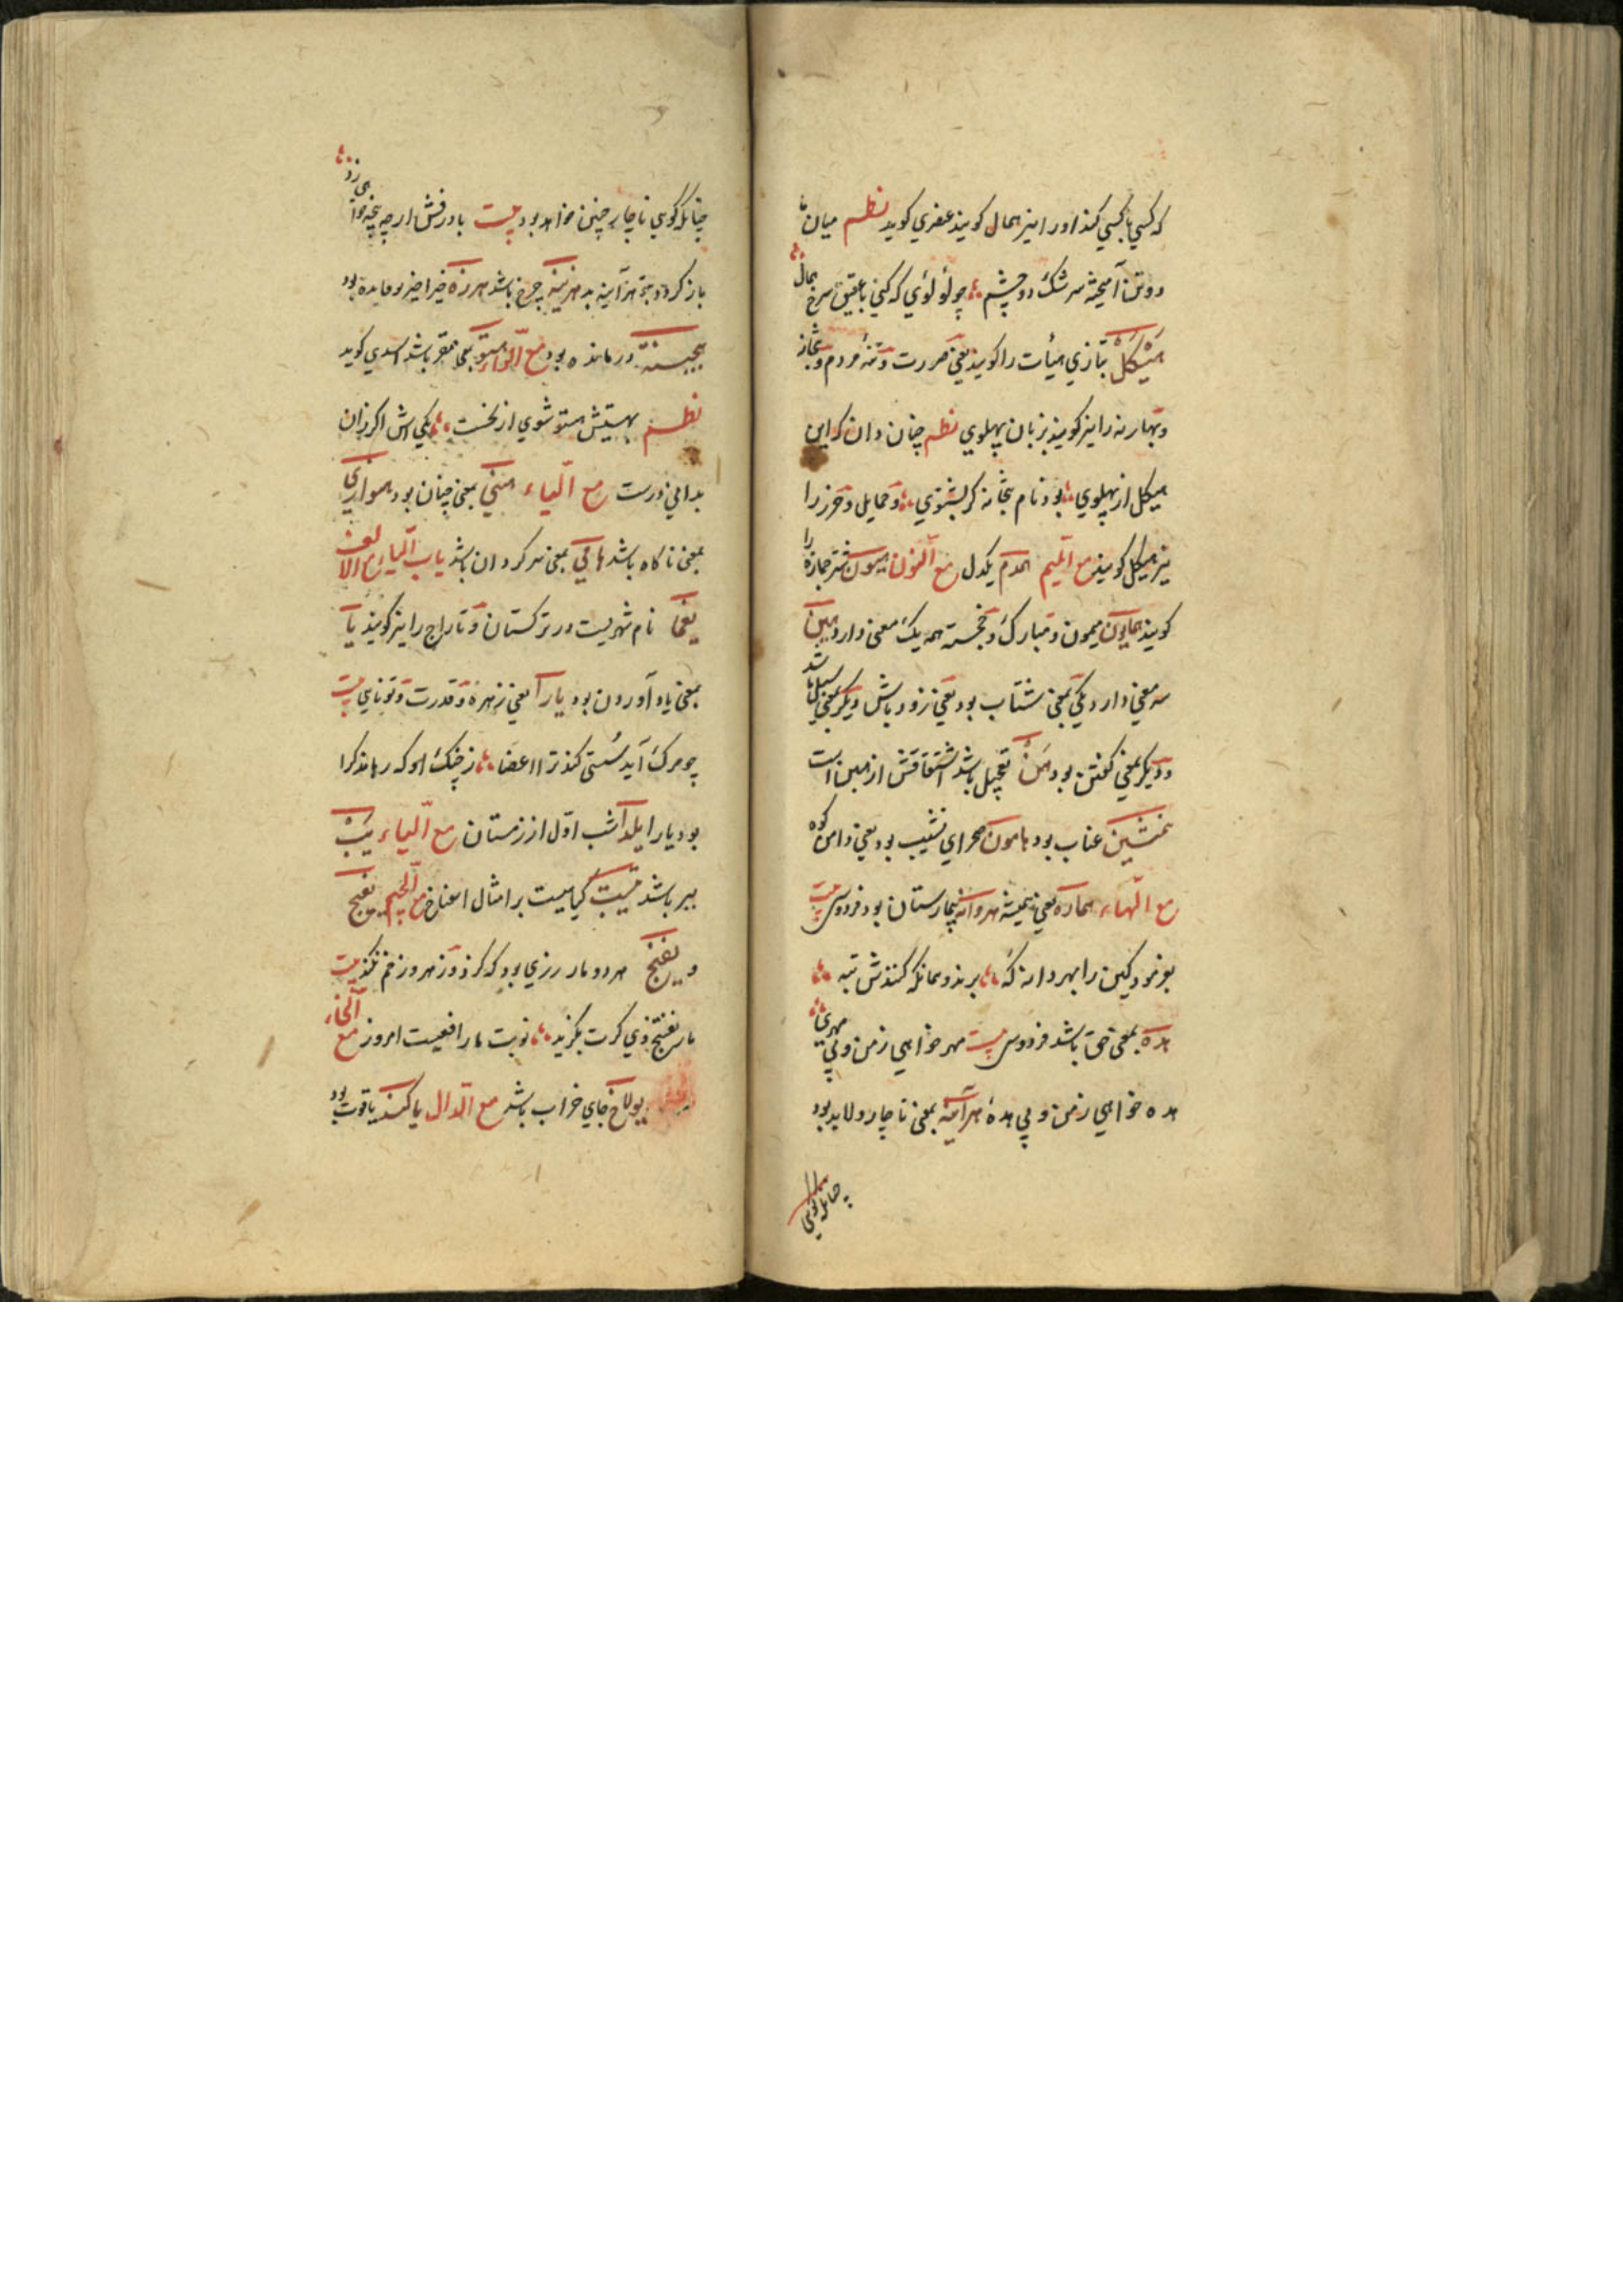 که کسی با کسی کند او را نیز همال کویند عنصری کوید نظم میان ما
دو تن آمیخته سرشک دو چشم چو لؤلؤی که کنی با عقیق سرخ همال
هَیْکَلْ بتازی هیأت را کویند یعنی صورت و تنهٔ مردم و بتخانه
و بهار نه را نیز کویند بزبان پهلوی نظم چنان دان که این
هیکل از پهلوی بود نام بتخانه کر بشنوی و حمایل و حرز را
نیز هیکل کویند مع المیم همدم یکدل مع النون هیون شتر جمازه را
کویند همایون میمون و مبارک و خجسته همه یک معنی دارد هین
سه معنی دارد یکی بمعنی شتاب بود یعنی زود باش دیکر بمعنی سیل باشد
و دیکر بمعنی کفتن بود هَنْ تعجیل باشد اشتقاقش از هین است
عناب بود هامون صحرای نشیب بود یعنی دامن کوه
مع الهاء هماره یعنی همیشه هروانه بیمارستان بود فردوسی بیت
بفرمود کین را بهروانه که برند و همانکه کنندش تبه
هده بمعنی حق باشد فردوسی بیت مهر خواهی ز من و بی مهری
هده خواهی ز من و بی هدهٔ هرآینه بمعنی ناچار و لابد بود
چنانکه کویی
چنانکه کویی ناچار چنین خواهد بود بیت بادرفش ار چه پنجه
باز کردد هرآینه بد هزینه خرج باشد هرزه خیراخیر و فایده بود
درمانده بود مع الواو هستو بمعنی مقر باشد اسدی کوید
نظم بهستیش هستو شوی از نخست یکی اش اکر زان
بدانی درست مع الیاء همی بمعنی چنان بود هوازی
بمعنی ناکاه باشد بمعنی سرکردان باشد باب الیاء مع الالف
یغما نام شهریست در ترکستان و تاراج را نیز کویند یا
بمعنی یاد آوردن بود یارا یعنی زهره و قدرت و توانایی بیت
چو مرک آید سُستی کند ترا اعضا ز چنک او که رهاند کرا
بود یارا یلدا شب اوّل از زمستان مع الباء یَبْ
تیر باشد کیاهیست بر امثال مع الجیم یفج
و یفنج هر دو مار زرزی بود که کزد و زهر و زخم نکند بیت
مار یفنج دی کرت بکزید نوبت مار افعیست امروز مع الخاء
یولاخ جای خراب باشد مع الدال یاکند یاقوت بود